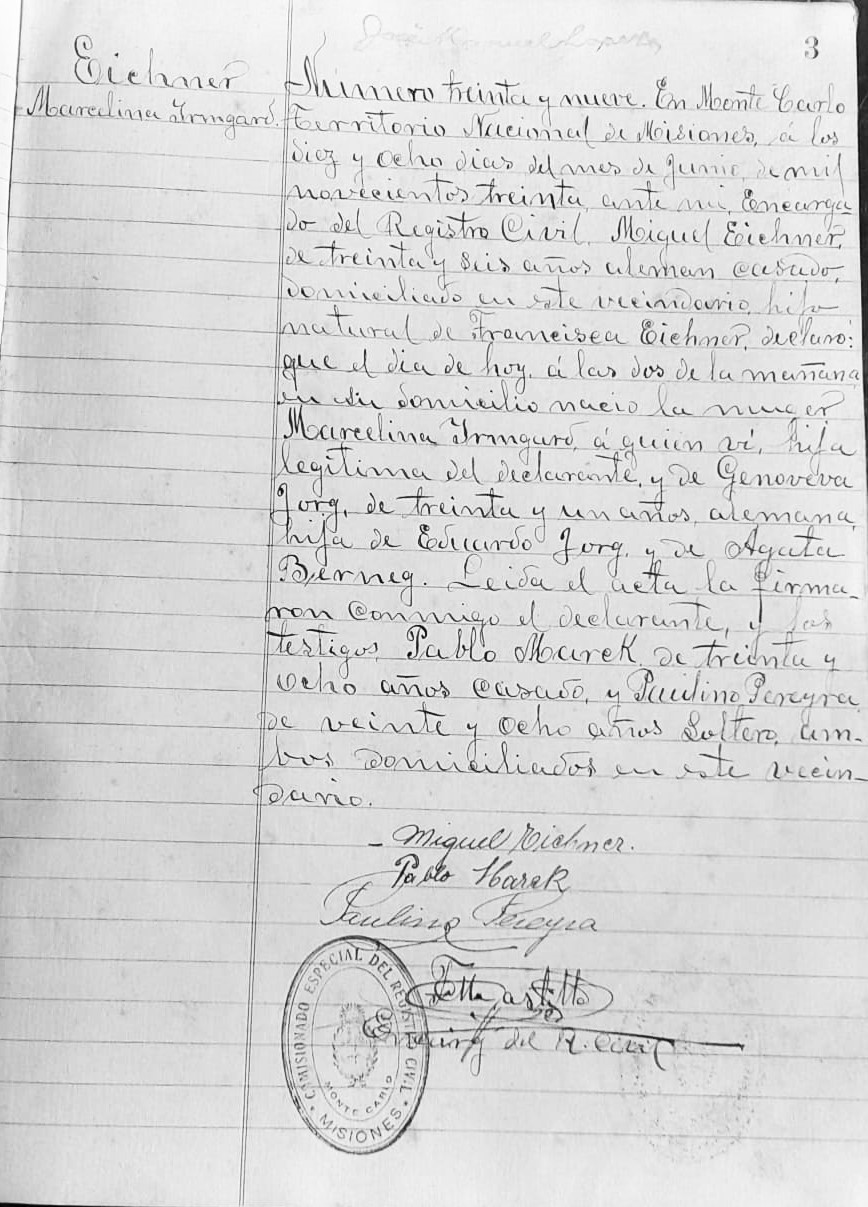 3
Eichner
Marcelina Irmgard.
Número treinta y nueve. En Monte Carlo
Territorio Nacional de Misiones, á los
diez y ocho dias del mes de Junio, de mil
novecientos treinta, ante mi, Encarga-
do del Registro Civil, Miguel Eichner,
de treinta y seis años aleman casado,
domiciliado en este vecindario, hijo
natural de Francisca Eichner, declaro:
que el dia de hoy, á las dos de la mañana
en su domicilio nacio la muger
Marcelina Irmgard, á quien ví, hija
legitima del declarante, y de Genoveva
Jorg, de treinta y un años, alemana,
hija de Eduardo Jorg, y de Agata
Berneg. Leida el acta la firma-
ron conmigo el declarante, y los
testigos, Pablo Marek, de treinta y
ocho años casado, y Paulino Pereyra,
de veinte y ocho años Soltero, am-
bos domiciliados en este vecin-
dario.
- Miguel Eichner.
Pablo Marek
Paulino Pereyra
del R. Civil
COMISIONADO ESPECIAL DEL REGISTRO CIVIL
MONTE CARLO
MISIONES